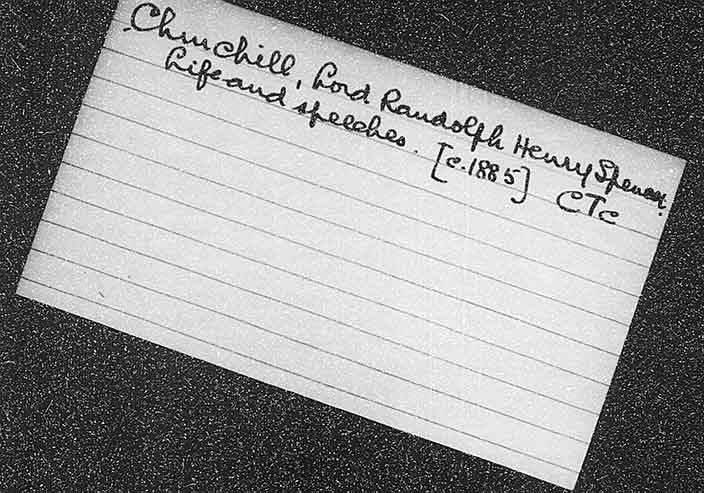 Churchill, Lord Randolph Henry Spencer.
Life and speeches. [c.1885] CTC